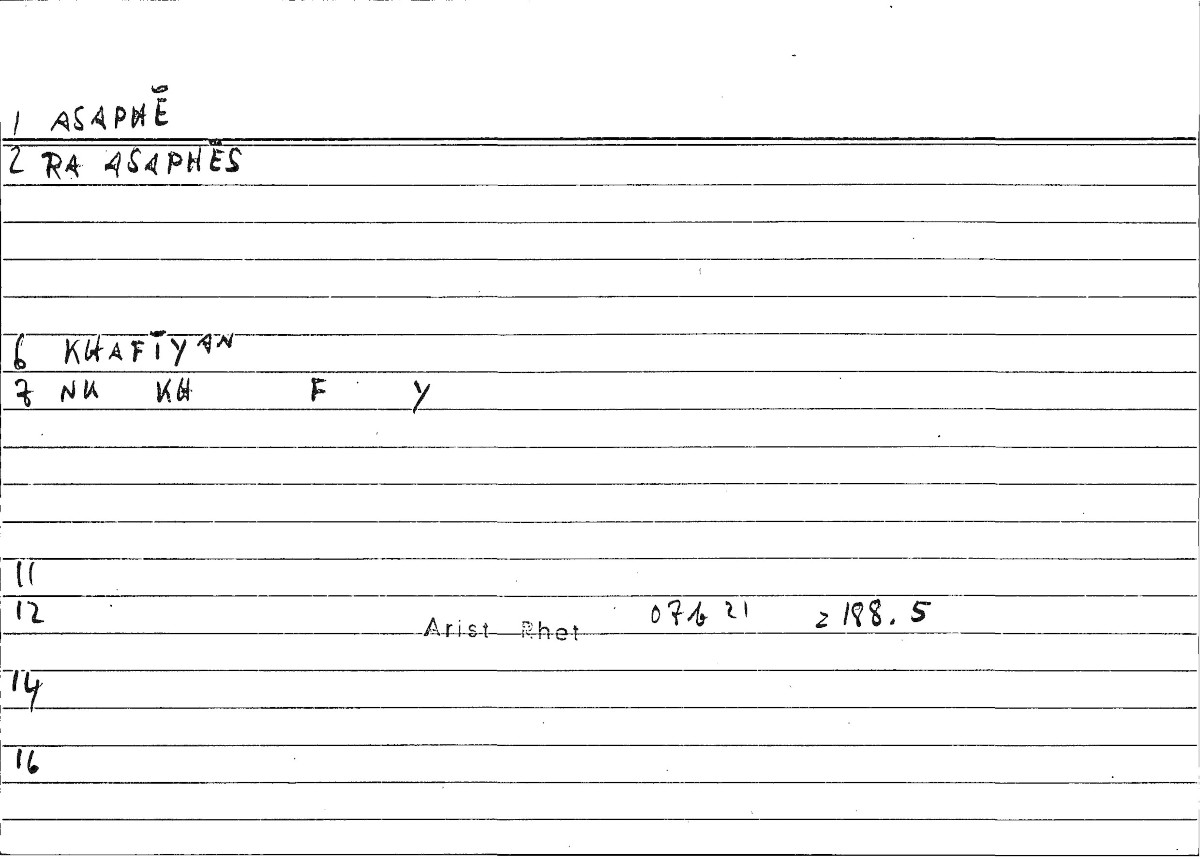 1 ASAPHĒ
2 RA ASAPHĒS
6 KHAFĪYAN
7 NK KH F Y
11
12 Arist Rhet 07b 21 2 188.5
14
16